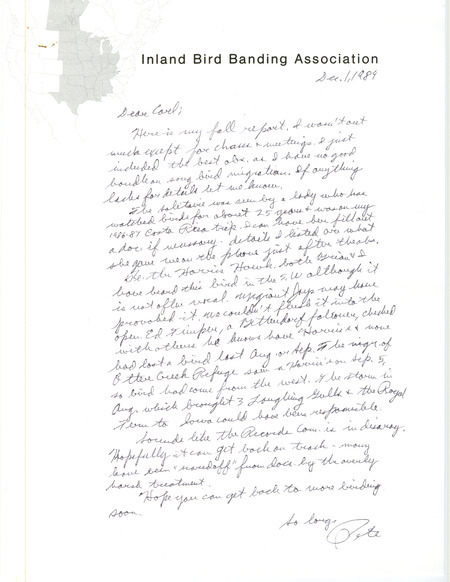 Inland Bird Banding Association
Dec. 1, 1989
Dear Carl;
Here is my fall report. I wasn't out
much except for chases & meetings. I just
included the best obs. as I have no good
handle on song bird migration. If anything
lacks for details let me know.
The solitaire was seen by a lady who has
watched birds for about 25 years & was on my
1986-87 Costa Rica trip. I can have her fill out
a doc. if necessary - details I listed are what
she gave me on the phone just after the obs.
Re. the Harris Hawk, both Brian & I
have heard this bird in the S.W. although it
is not often vocal. Migrant Jays may have
provoked it. We couldn't flush it into the
open. Ed Fimper, a Bettendorf falconer, checked
with others he knows have Harris's & none
had lost a bird last Aug. or Sep. The mgr of
Otter Creek Refuge saw a Harris's on Sep. 5,
so bird had come from the west. The storm in
Aug. which brought 3 Laughing Gulls & the Royal
Tern to Iowa could have been responsible.
Sounds like the Records Com. is in disarray.
Hopefully it can get back on track - many
have been "scared off" from docs by the overly
harsh treatment.
Hope you can get back to more birding
soon.
So long,
Pete